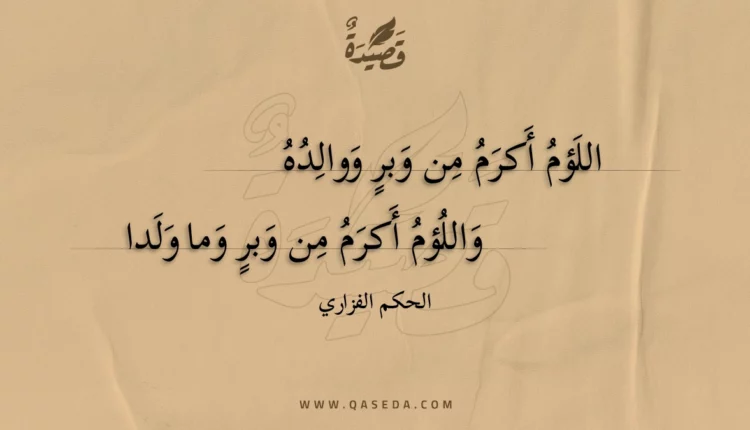 قَصِيدَةٌ
اللَؤمُ أَكرَمُ مِن وَبرٍ وَوالِدُهُ
وَاللُؤمُ أَكرَمُ مِن وَبرٍ وَما وَلَدا
الحكم الفزاري
WWW.QASEDA.COM